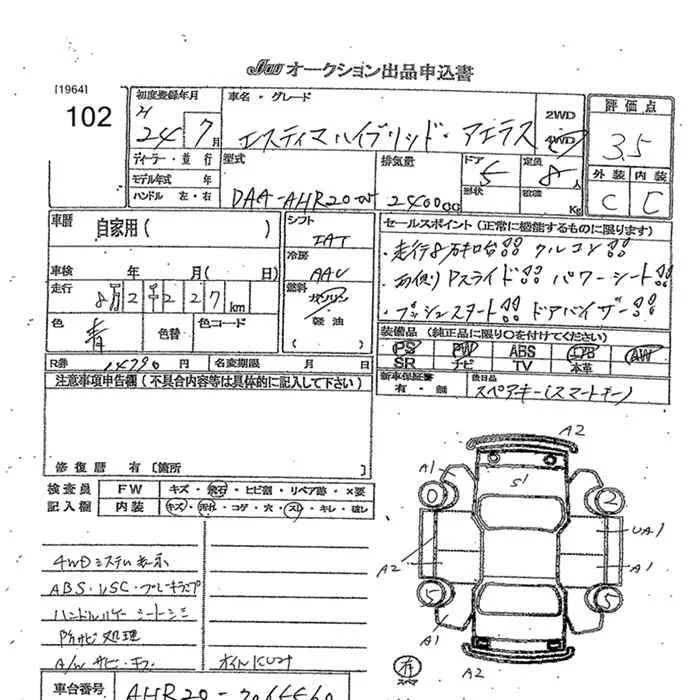 JU オークション出品申込書
[1964]
102
初度登録年月
24 7月
車名・グレード
エスティマハイブリッド・アエラス
2WD
4WD
評価点
3.5
ディーラー・並行
モデル年式 年
ハンドル 左・右
型式
DAA-AHR20W
排気量
2400cc
ドア
5
形状
定員
8人
積載
Kg
外装 内装
C C
車歴
自家用( )
シフト
IAT
セールスポイント(正常に機能するものに限ります)
・走行8万キロ台!! クルコン!!
車検 年 月( 日)
冷房
AAC
・両側Pスライド!! パワーシート!!
走行
8万2千227km
燃料
ガソリン
軽油
( )
・プッシュスタート!! ドアバイザー!!
色
青
色替
色コード
装備品(純正品に限り○を付けてください)
PS PW ABS エアB AW
SR ナビ TV 本革
R券 14790円
名変期限 月 日
新車保証書
有・無
後日品
スペアキー(スマートキー)
注意事項申告欄(不具合内容等は具体的に記入して下さい)
修復歴 有[箇所 ]
検査員
記入欄
FW
キズ・飛石・ヒビ割・リペア跡・×要
内装
キズ・汚れ・コゲ・穴・スレ・キレ・破レ
4WDシステム表示
ABS・VSC・ブレーキランプ
ハンドルハゲ シートシミ
防サビ処理
A/Wサビ・キズ
オイルにじみ
車台番号
AHR20-
A2
A1
S1
2
UA1
A2
A1
5
5
A1
A2
有
スペア